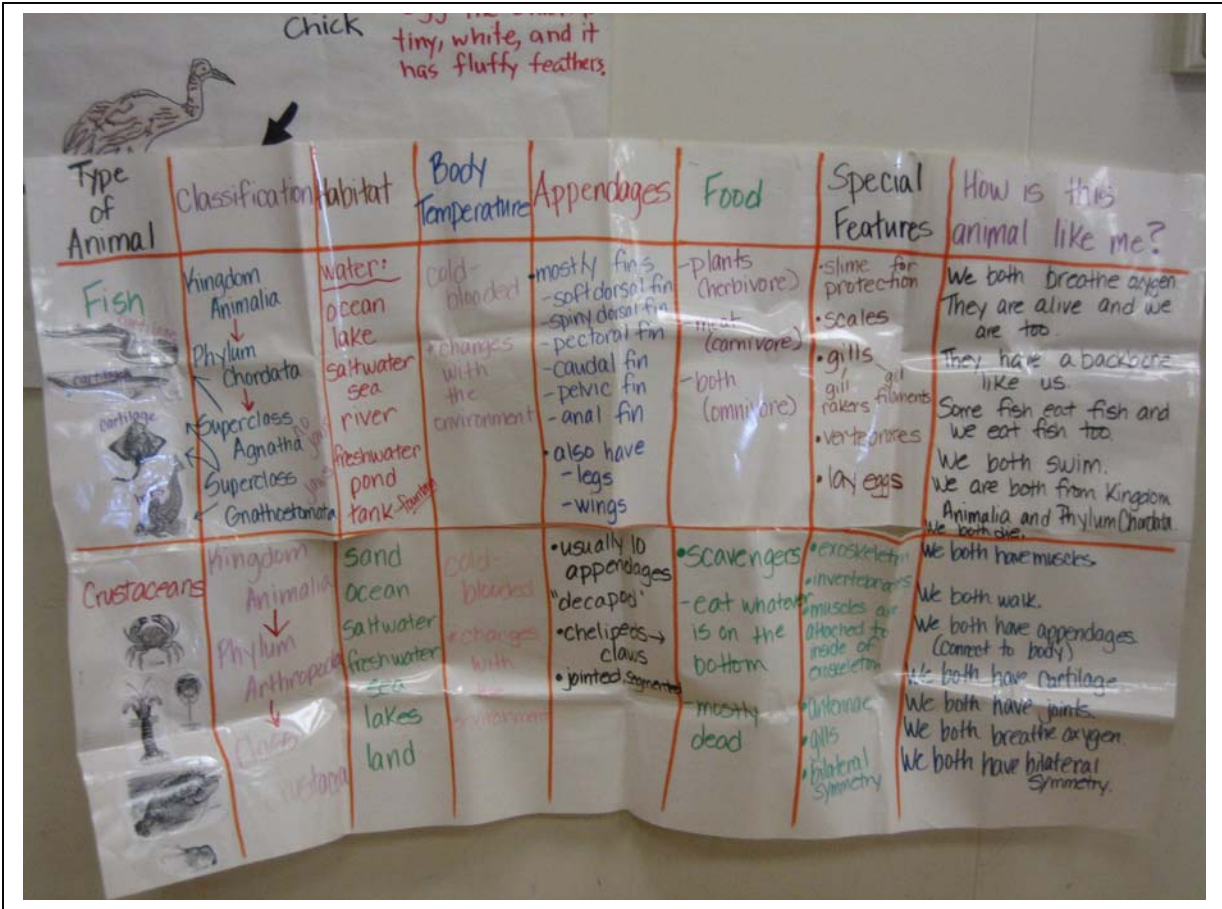 Chick
tiny, white, and it
has fluffy feathers.
Type
of
Animal
Classification
Habitat
Body
Temperature
Appendages
Food
Special
Features
How is this
animal like me?
Fish
cartilage
cartilage
cartilage
Kingdom
Animalia
Phylum
Chordata
Superclass
Agnatha
no
jaws
Superclass
Gnathostomata
jaws
water:
ocean
lake
saltwater
sea
river
freshwater
pond
tank-fountain
cold-
blooded
*changes
with
the
environment
•mostly fins
-soft dorsal fin
-spiny dorsal fin
-pectoral fin
-caudal fin
-pelvic fin
-anal fin
•also have
-legs
-wings
-plants
(herbivore)
-meat
(carnivore)
-both
(omnivore)
•slime for
protection
•scales
•gills
gill
rakers
gill
filaments
•vertebrates
•lay eggs
We both breathe oxygen
They are alive and we
are too.
They have a backbone
like us.
Some fish eat fish and
we eat fish too.
We both swim.
We are both from Kingdom
Animalia and Phylum Chordata.
We both die.
Crustaceans
Kingdom
Animalia
Phylum
Arthropoda
Class
Crustacea
sand
ocean
saltwater
freshwater
sea
lakes
land
cold-
blooded
*changes
with
the
environment
•usually 10
appendages
"decapod"
•chelipeds→
claws
•jointed, segmented
•scavengers
-eat whatever
is on the
bottom
-mostly
dead
•exoskeleton
•invertebrates
•muscles are
attached to
inside of
exoskeleton
•antennae
•gills
•bilateral
symmetry
We both have muscles.
We both walk.
We both have appendages.
(connect to body)
We both have cartilage
We both have joints.
We both breathe oxygen.
We both have bilateral
symmetry.